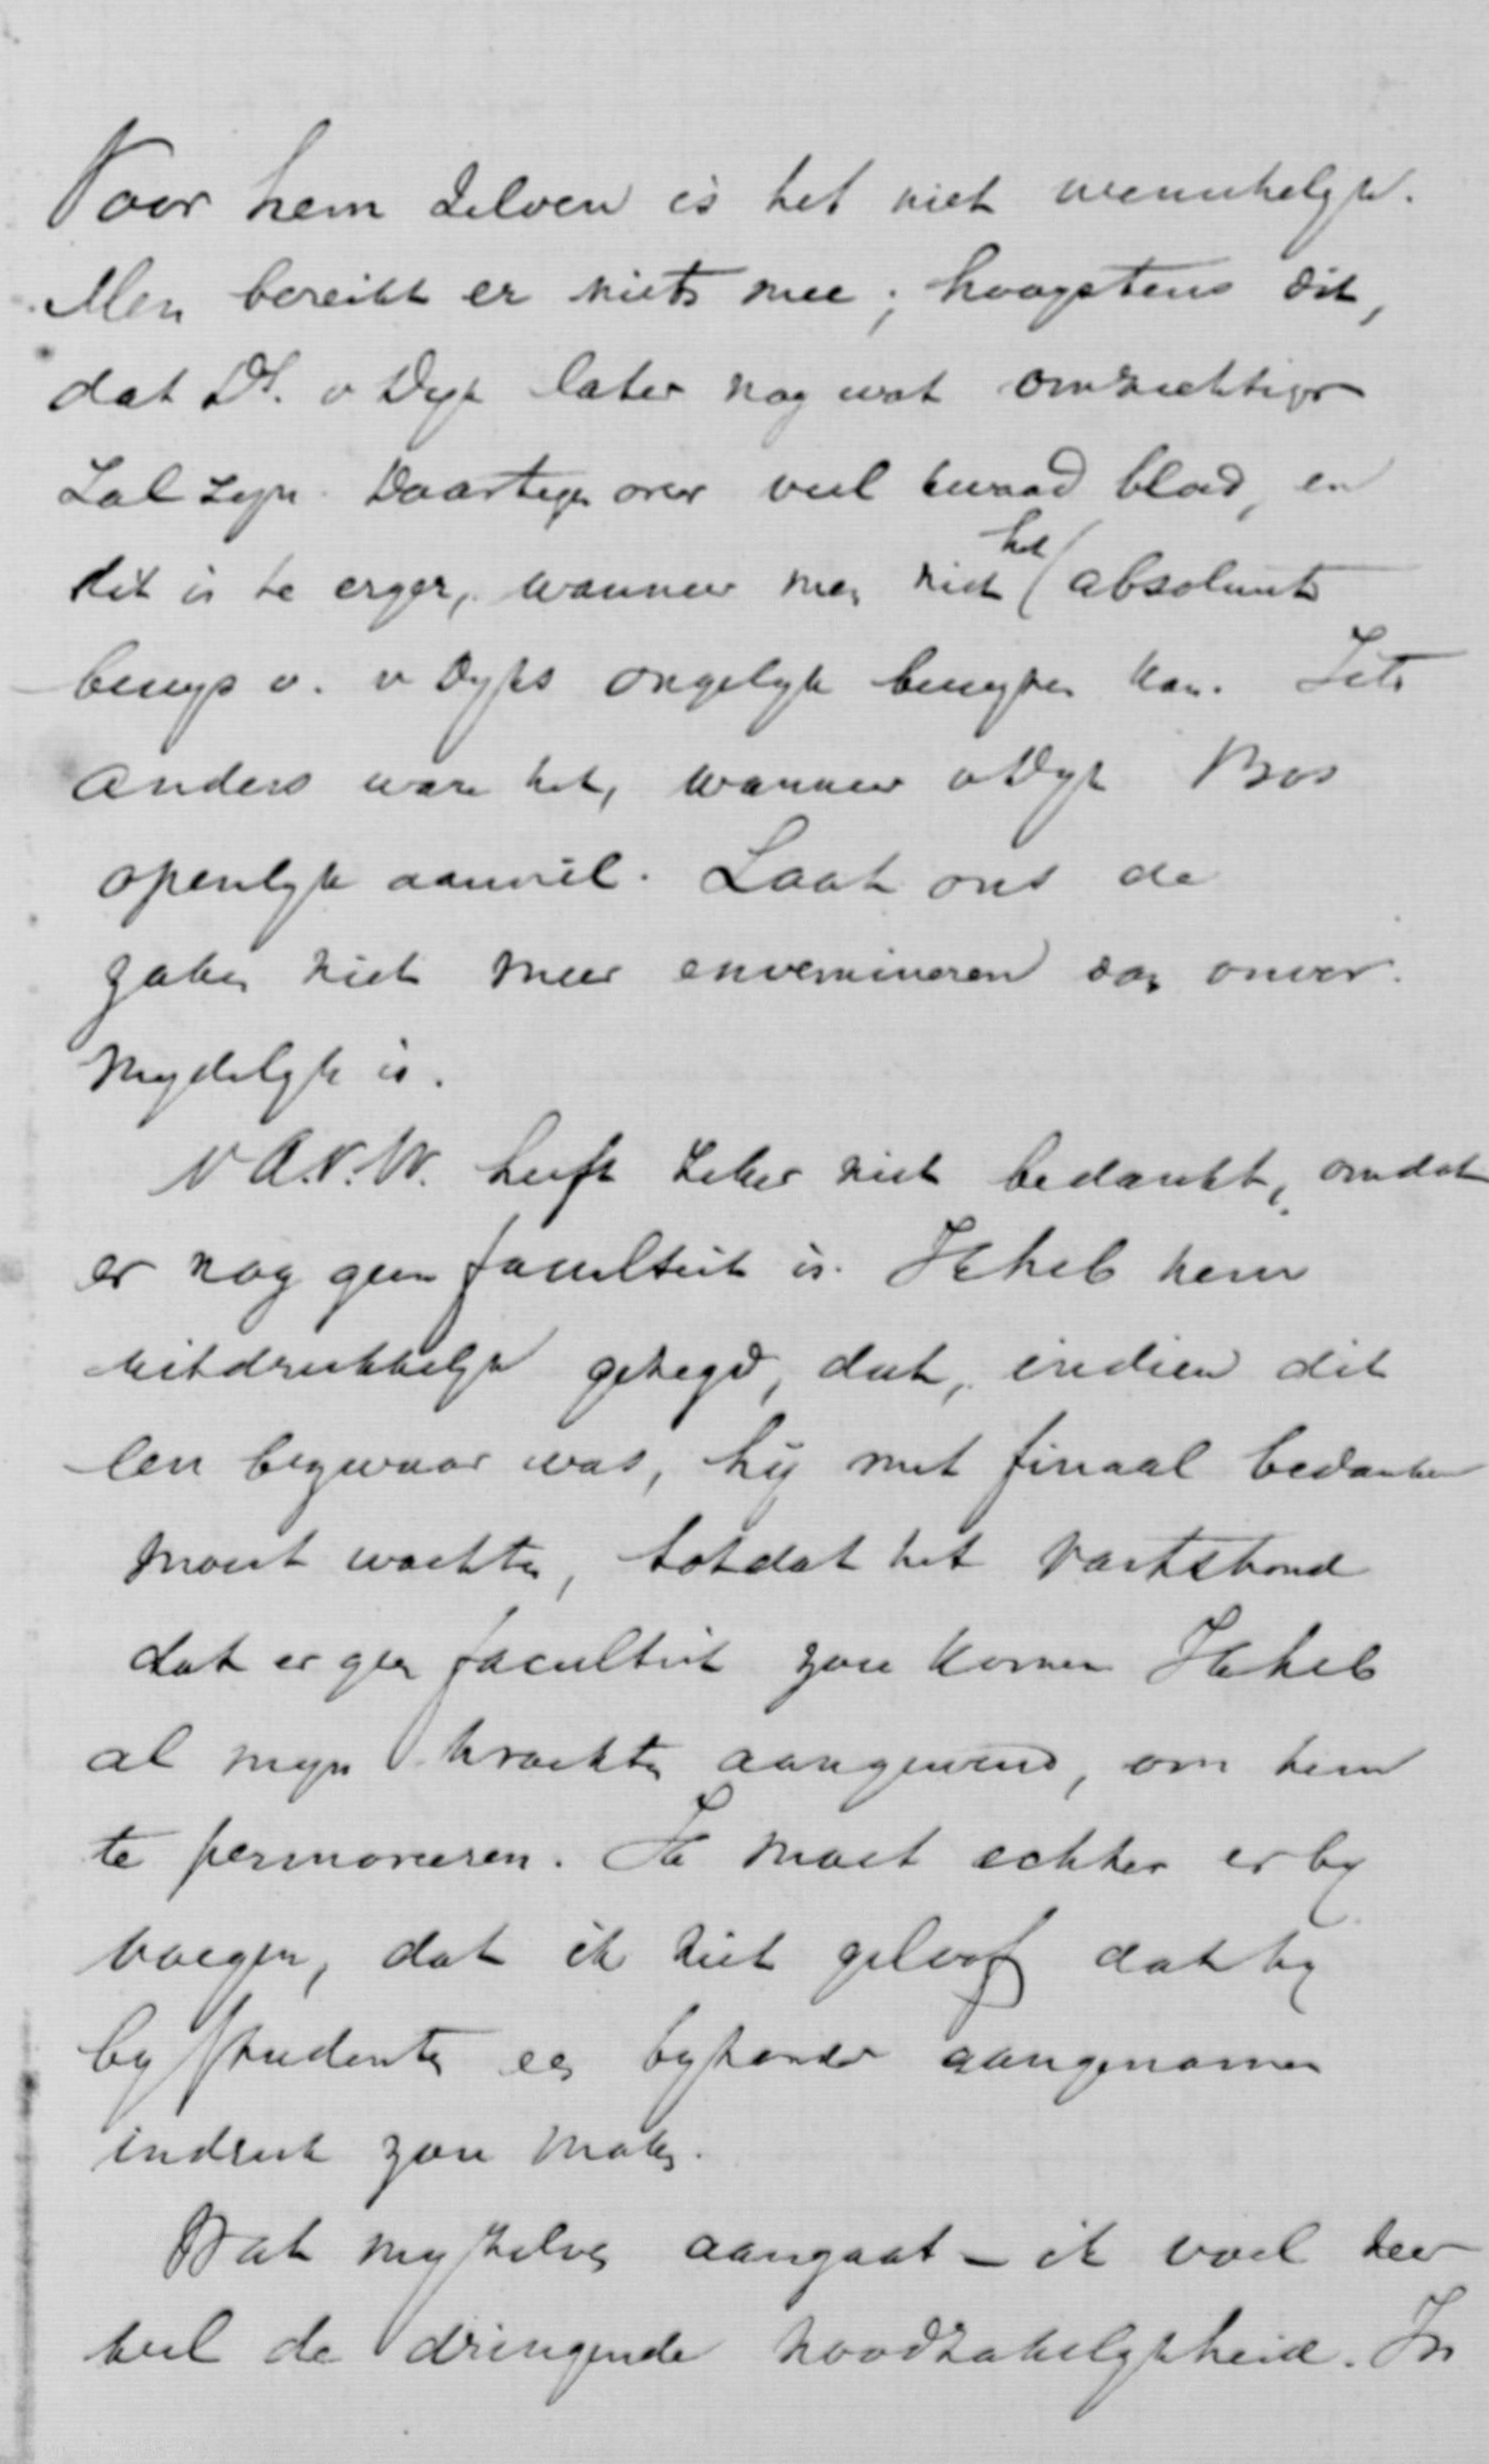 Voor hem zelven is het niet wenschelyk.
Men bereikt er niets mee; hoogstens dit,
dat Ds. v Dyk later nog wat omzichtiger
zal zyn. Daartegenover veel kwaad bloed, en
dit is te erger, wanneer men niet het absolunte
bewys v. v Dyks ongelyk bewyzen kan. Iets
anders ware het, wanneer v Dyk Bos
openlyk aanviel. Laat ons de
zaken niet meer envenimeren dan onver-
mydelyk is.
V A.V.W. heeft zeker niet bedankt, omdat
er nog geen faculteit is. Ik heb hem
uitdrukkelyk gezegd, dat, indien dit
een bezwaar was, hij met finaal bedanken
moest wachten, totdat het vaststond
dat er geen faculteit zou komen Ik heb
al myn krachten aangewend, om hem
te permoveeren. Ik moet echter er by
voegen, dat ik niet geloof dat hy
by studenten een byzonder aangenamen
indruk zou maken.
Wat my zelven aangaat - ik voel zeer
veel de dringende noodzakelykheid. In